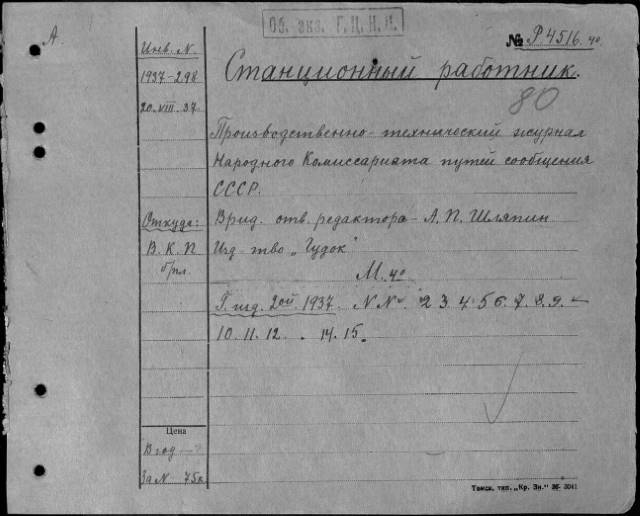 А.
Об. экз. Г.Ц.К.П.
№ Р 4516. 40
Инв. N.
1937-298
20. VIII. 37.
Станционный работник.
80
Производственно-технический журнал
Народного Комиссариата путей сообщения
СССР.
Откуда:
В. К. П
бпл.
Врид. отв. редактора- А. П. Шляпин
Изд-тво „Гудок"
М. 40
Г. изд. 2ой. 1937. N N 2 3. 4. 5 6. 7. 8. 9. –
10. 11. 12. . 14. 15.
Цена
В год – ?
За N. 75к
Томск. тип. „Кр. Зн."